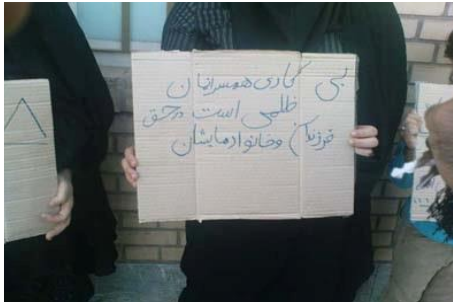 بی کاری همسرانمان
ظلمی است در حق
فرزندان و خانواده‌هایشان